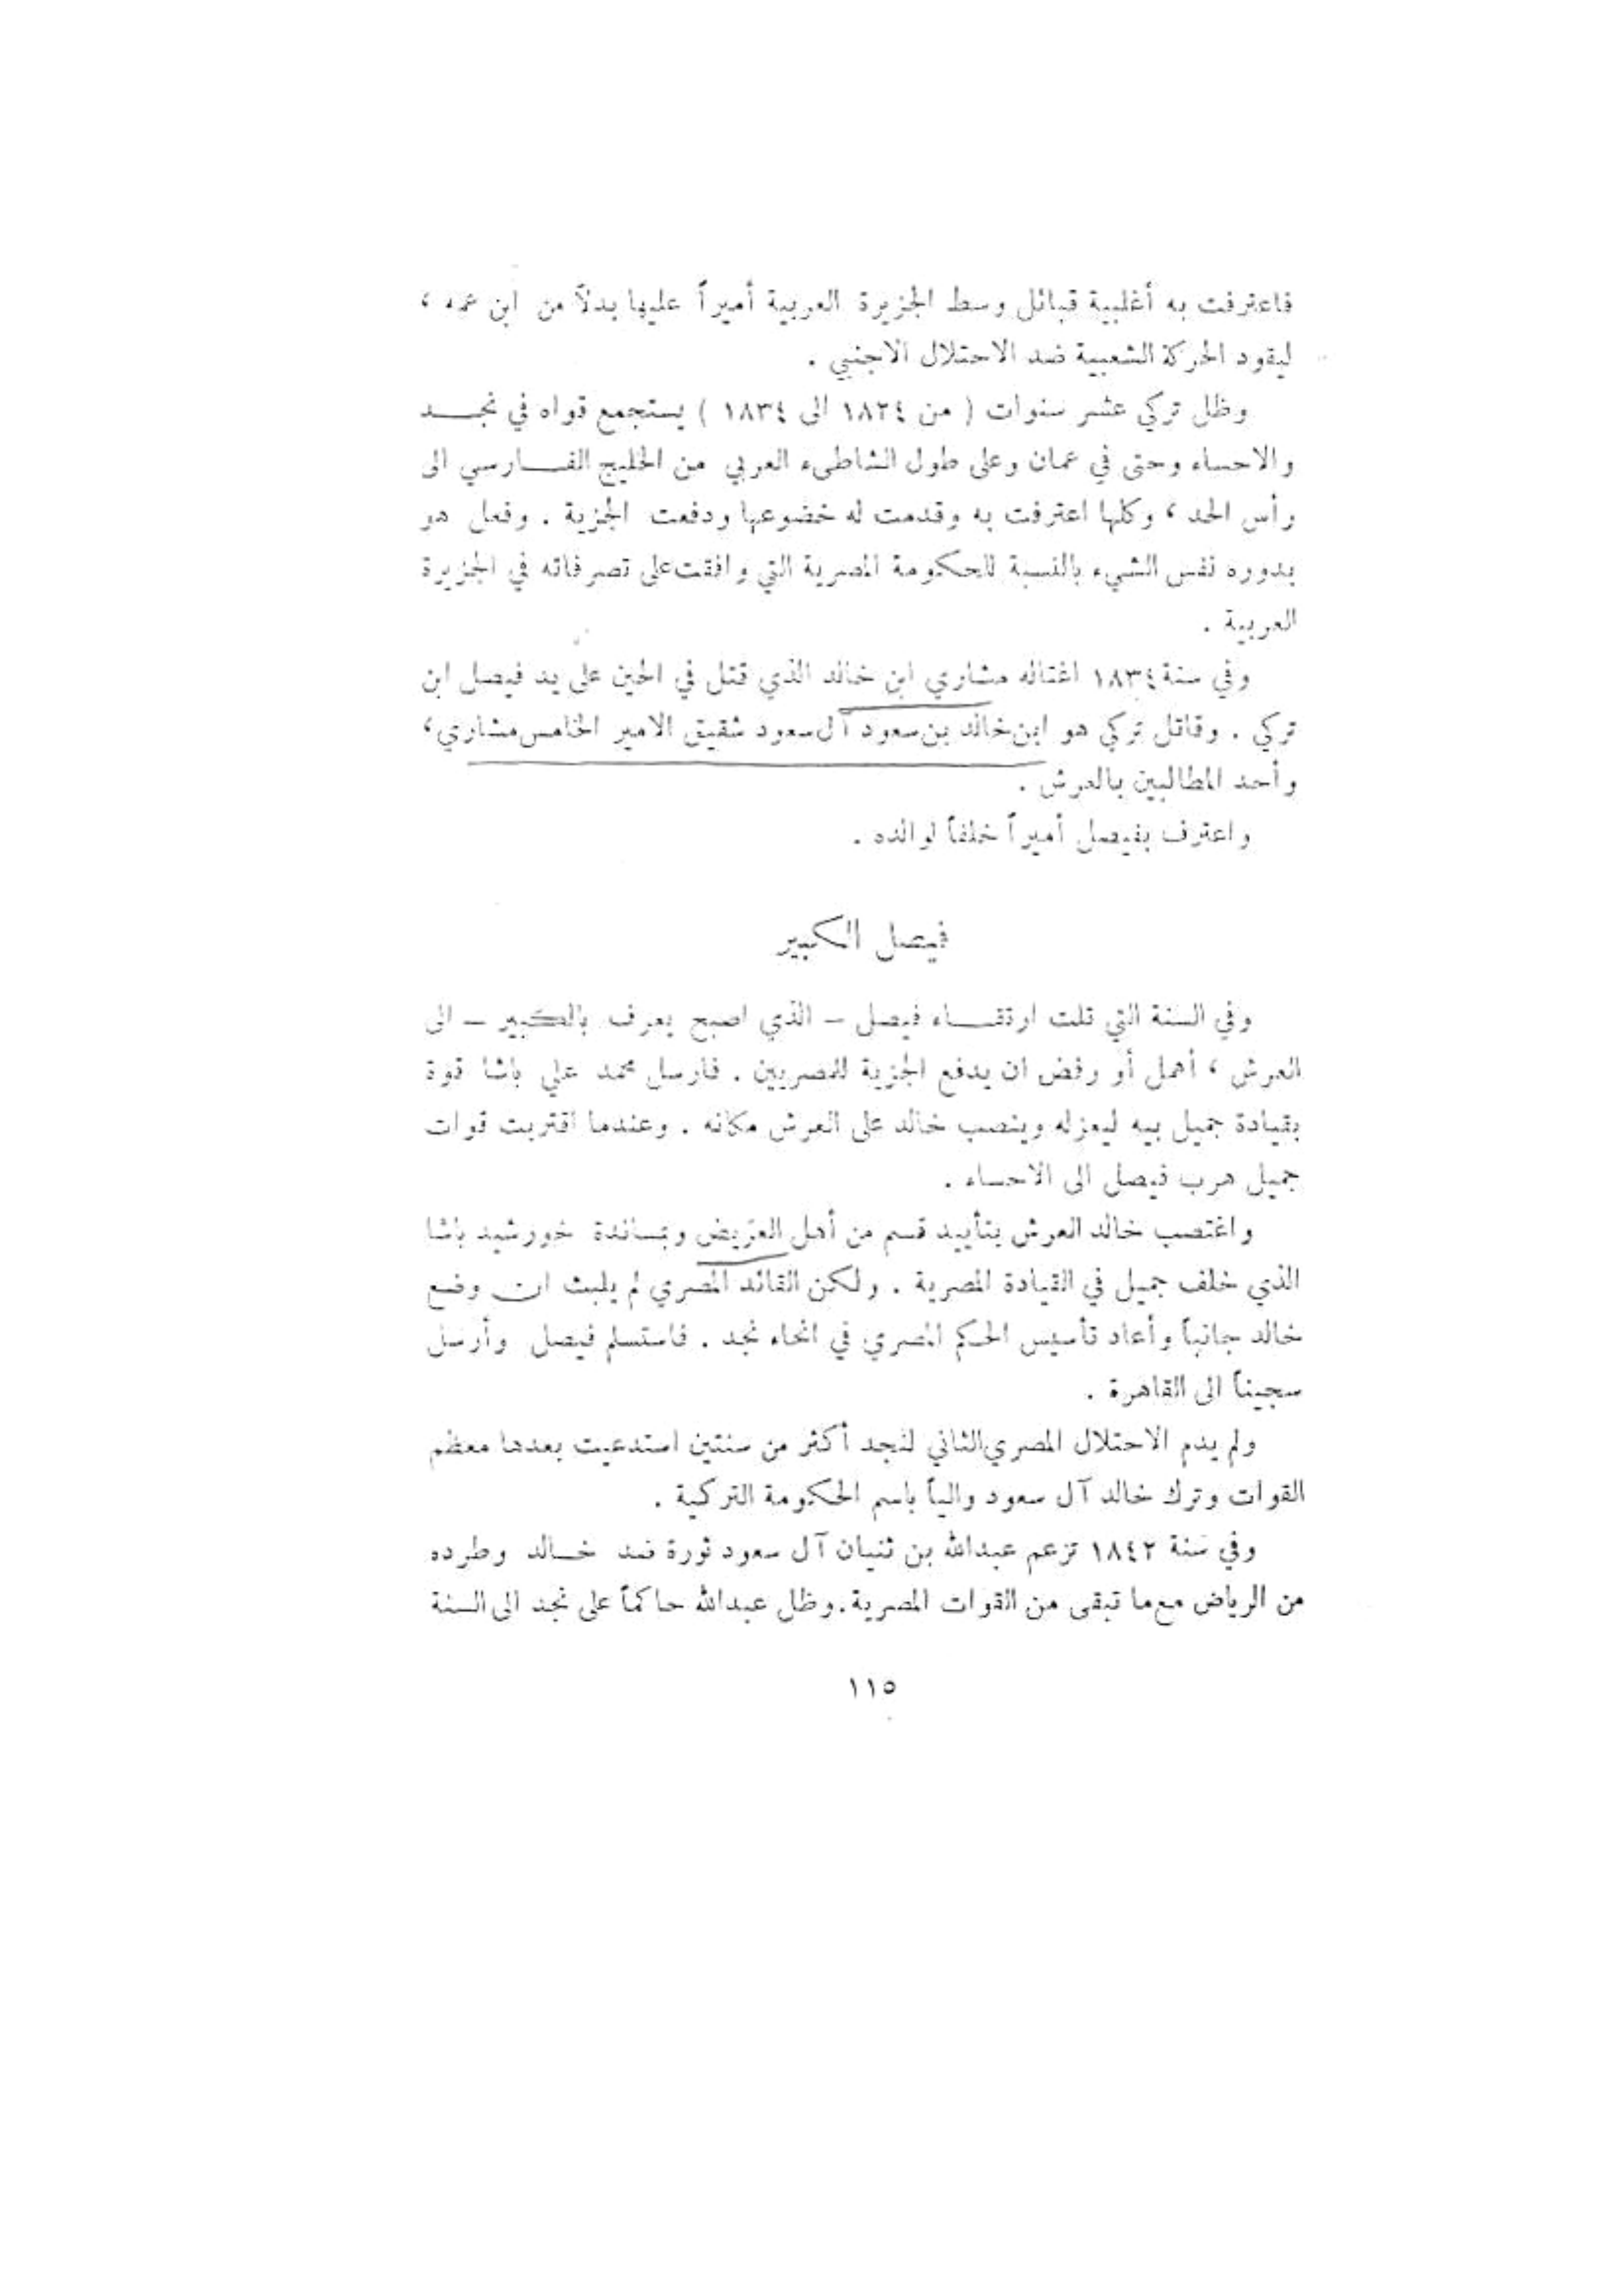 فاعترفت به أغلبية قبائل وسط الجزيرة العربية أميراً عليها بدلاً من ابن عمه ،
ليقود الحركة الشعبية ضد الاحتلال الاجنبي .
وظل تركي عشر سنوات ( من ١٨٢٤ الى ١٨٣٤ ) يستجمع قواه في نجـــد
والاحساء وحتى في عمان وعلى طول الشاطىء العربي من الخليج الفـــارسي الى
رأس الحد ، وكلها اعترفت به وقدمت له خضوعها ودفعت الجزية . وفعل هو
بدوره نفس الشيء بالنسبة للحكومة المصرية التي وافقت على تصرفاته في الجزيرة
العربية .
وفي سنة ١٨٣٤ اغتاله مشاري ابن خالد الذي قتل في الحين على يد فيصل ابن
تركي . وقاتل تركي هو ابن خالد بن سعود آل سعود شقيق الامير الخامس مشاري ،
وأحد المطالبين بالعرش .
واعترف بفيصل أميراً خلفاً لوالده .
فيصل الكبير
وفي السنة التي تلت ارتقـــاء فيصل – الذي اصبح يعرف بالكبير – الى
العرش ، أهمل أو رفض ان يدفع الجزية للمصريين . فارسل محمد علي باشا قوة
بقيادة جميل بيه ليعزله وينصب خالد على العرش مكانه . وعندما اقتربت قوات
جميل هرب فيصل الى الاحساء .
واغتصب خالد العرش بتأييد قسم من أهل العريض وبمساندة خورشيد باشا
الذي خلف جميل في القيادة المصرية . ولكن القائد المصري لم يلبث ان وضع
خالد جانباً وأعاد تأسيس الحكم المصري في انحاء نجد . فاستسلم فيصل وأرسل
سجيناً الى القاهرة .
ولم يدم الاحتلال المصري الثاني لنجد أكثر من سنتين استدعيت بعدها معظم
القوات وترك خالد آل سعود والياً باسم الحكومة التركية .
وفي سنة ١٨٤٢ تزعم عبدالله بن ثنيان آل سعود ثورة ضد خـــالد وطرده
من الرياض مع ما تبقى من القوات المصرية . وظل عبدالله حاكماً على نجد الى السنة
١١٥